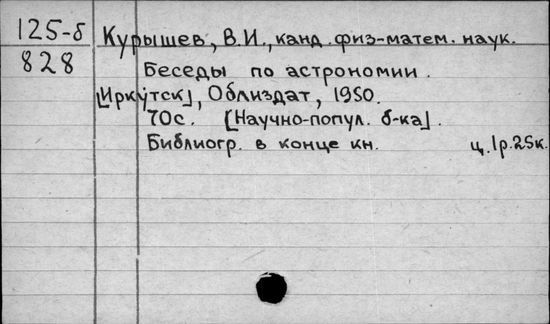 125-б
828
Курышев, В.И., канд. физ-матем. наук.
Беседы по астрономии.
[Иркутск], Облиздат, 1950.
70с. [Научно-попул. б-ка].
Библиогр. в конце кн. ц. 1р.25к.